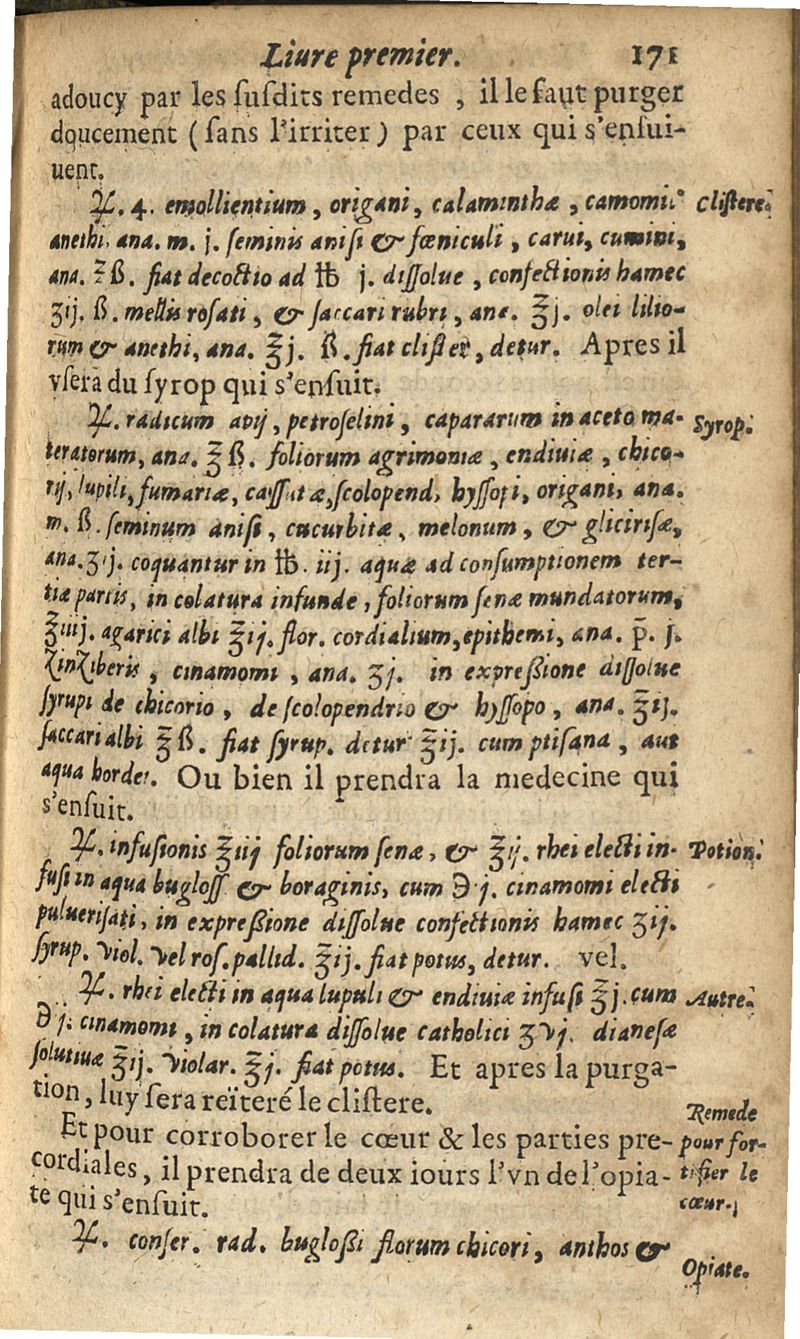 Liure premier. 171
adoucy par les ſuſdits remedes , il le faut purger
doucement (ſans l'irriter) par ceux qui s'enſui-
uent.
℞. 4. emollientium, origani, calaminthæ, camomil. Cliſtere.
anethi, ana. m. j. ſeminis aniſi & fœniculi, carui, cumini,
ana. ℥ß. fiat decoctio ad ℔ j. diſſolue, confectionis hamec
ʒij. ß. mellis roſati, & ſaccari rubri, ana. ℥j. olei lilio-
rum & anethi, ana. ℥j. ß. fiat cliſter, detur. Apres il
vſera du ſyrop qui s'enſuit.
℞. radicum apij, petroſelini, capararum in aceto ma- Syrop.
teratorum, ana. ℥ß. foliorum agrimoniæ, endiuiæ, chico-
rij, lupili, fumariæ, caſſutæ, ſcolopend, hyſſopi, origani, ana.
m. ß. ſeminum aniſi, cucurbitæ, melonum, & gliciriſæ,
ana. ʒij. coquantur in ℔. iij. aquæ ad conſumptionem ter-
tiæ partis, in colatura infunde, foliorum ſenæ mundatorum,
℥iiij. agarici albi ℥ij. flor. cordialium, epithemi, ana. p. j.
zinziberis, cinamomi, ana. ʒj. in expreßione diſſolue
ſyrupi de chicorio, de ſcolopendrio & hyſſopo, ana. ℥ij.
ſaccari albi ℥ß. fiat ſyrup. detur ℥ij. cum ptiſana, aut
aqua hordei. Ou bien il prendra la medecine qui
s'enſuit.
℞. infuſionis ℥iij foliorum ſenæ, & ℥ij. rhei electi in- Potion.
fuſi in aqua bugloſſ & boraginis, cum ℈ j. cinamomi electi
pulueriſati, in expreßione diſſolue confectionis hamec ʒij.
ſyrup. viol. vel roſ. pallid. ℥ij. fiat potus, detur. vel.
℞. rhei electi in aqua lupuli & endiuiæ infuſi ℥j. cum Autre.
℈ j. cinamomi, in colatura diſſolue catholici ʒvj. dianeſæ
ſolutiuæ ℥ij. violar. ℥j. fiat potus. Et apres la purga-
tion, luy ſera reïteré le cliſtere.
Et pour corroborer le cœur & les parties pre-
cordiales, il prendra de deux iours l'vn de l'opia-
te qui s'enſuit.
Remede
pour for-
tifier le
cœur.
℞. conſer. rad. bugloßi florum chicori, anthos &
Opiate.